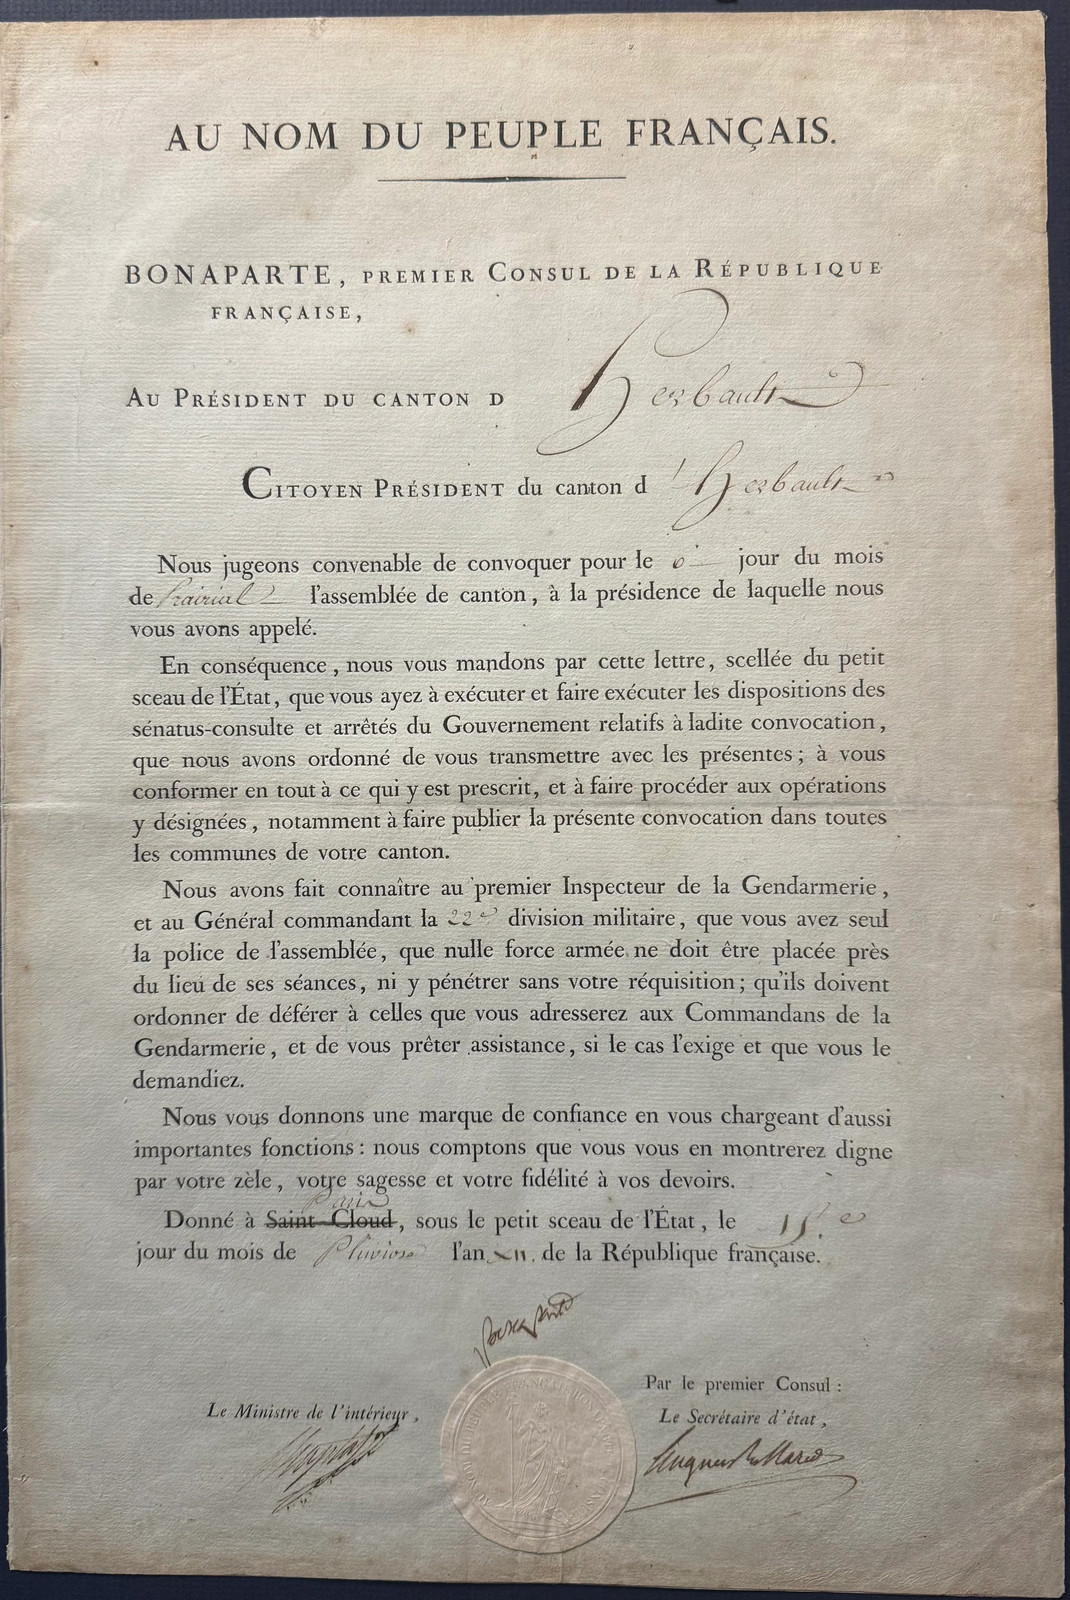 AU NOM DU PEUPLE FRANÇAIS.
BONAPARTE, PREMIER CONSUL DE LA RÉPUBLIQUE
FRANÇAISE,
AU PRÉSIDENT DU CANTON D Herbault
CITOYEN PRÉSIDENT du canton d'Herbault
Nous jugeons convenable de convoquer pour le jour du mois
de Prairial l'assemblée de canton, à la présidence de laquelle nous
vous avons appelé.
En conséquence, nous vous mandons par cette lettre, scellée du petit
sceau de l'État, que vous ayez à exécuter et faire exécuter les dispositions des
sénatus-consulte et arrêtés du Gouvernement relatifs à ladite convocation,
que nous avons ordonné de vous transmettre avec les présentes; à vous
conformer en tout à ce qui y est prescrit, et à faire procéder aux opérations
y désignées, notamment à faire publier la présente convocation dans toutes
les communes de votre canton.
Nous avons fait connaître au premier Inspecteur de la Gendarmerie,
et au Général commandant la 22e division militaire, que vous avez seul
la police de l'assemblée, que nulle force armée ne doit être placée près
du lieu de ses séances, ni y pénétrer sans votre réquisition; qu'ils doivent
ordonner de déférer à celles que vous adresserez aux Commandans de la
Gendarmerie, et de vous prêter assistance, si le cas l'exige et que vous le
demandiez.
Nous vous donnons une marque de confiance en vous chargeant d'aussi
importantes fonctions: nous comptons que vous vous en montrerez digne
par votre zèle, votre sagesse et votre fidélité à vos devoirs.
Paris
Donné à Saint-Cloud, sous le petit sceau de l'État, le 15.e
jour du mois de Pluviose l'an XII. de la République française.
Bonaparte
Par le premier Consul:
Le Ministre de l'intérieur,
Le Secrétaire d'état,
Chaptal
Hugues B. Maret